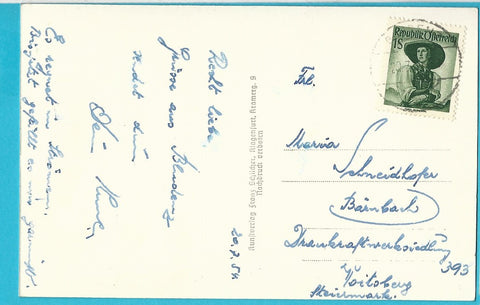 Recht liebe
Grüsse aus Bludenz
sendet dir
Dein
20.7.54
Es regnet in Strömen.
gefällt es mir
Kunstverlag Franz Schilcher, Klagenfurt, Kramerg. 9
Nachdruck verboten
Republik Österreich
1S
Frl.
Maria
Schneidhofer
Bärnbach
Draukraftwerksiedlung
393
Voitsberg
Steiermark.